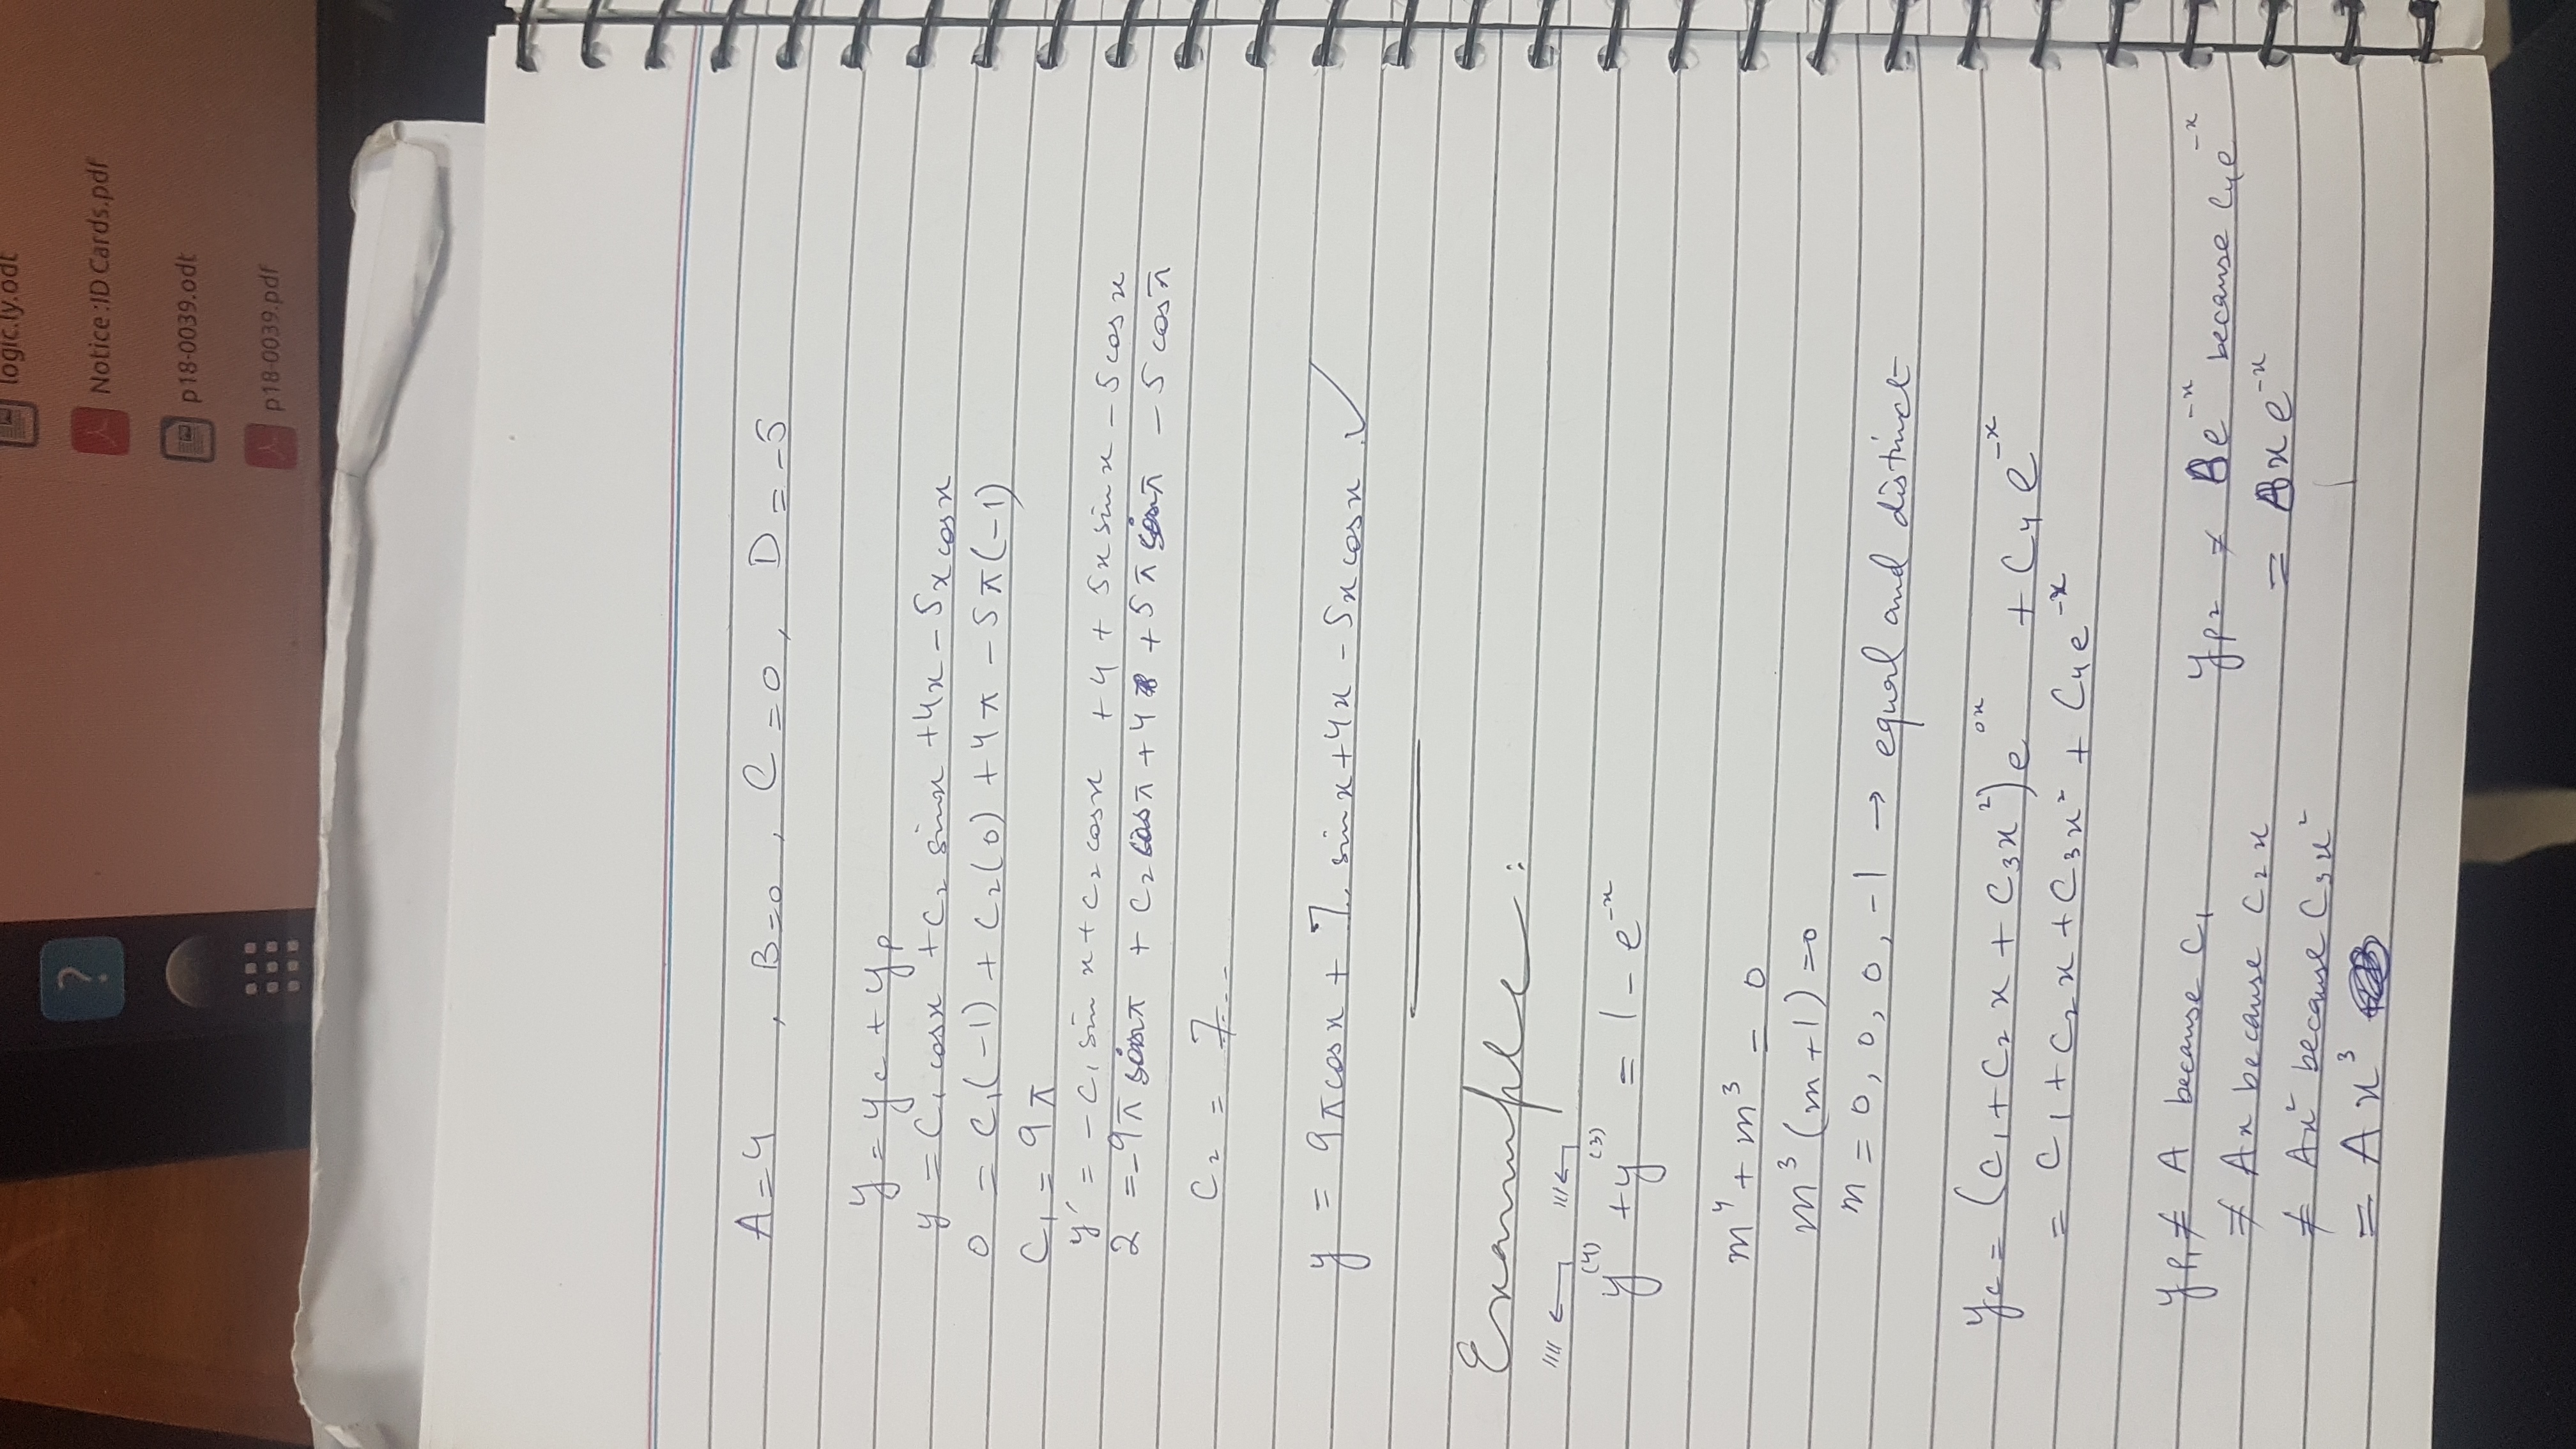 logic.ly.odt
?
Notice :ID Cards.pdf
p18-0039.odt
p18-0039.pdf
A = 4 , B = 0 , C = 0 , D = -5
y = yc + yp
y = C₁ cosx + C₂ sinx + 4x - 5x cosx
0 = C₁(-1) + C₂(0) + 4π - 5π(-1)
C₁ = 9π
y′ = -C₁ sin x + C₂ cosx + 4 + 5x sin x - 5 cos x
2 = -9π sinπ + C₂ cosπ + 4 + 5π sinπ - 5 cosπ
C₂ = 7
y = 9π cosx + 7 sinx + 4x - 5x cosx ✓
Example :
'''' ← ''' ←
y⁽⁴⁾ + y⁽³⁾ = 1 - e⁻ˣ
m⁴ + m³ = 0
m³ (m+1) = 0
m = 0, 0, 0, -1 → equal and distinct
yc = (C₁ + C₂x + C₃x²) e⁰ˣ + C₄ e⁻ˣ
= C₁ + C₂x + C₃x² + C₄e⁻ˣ
yp₁ ≠ A because C₁
≠ Ax because C₂x
≠ Ax² because C₃x²
= Ax³
yp₂ ≠ Be⁻ˣ because C₄e⁻ˣ
= Bxe⁻ˣ